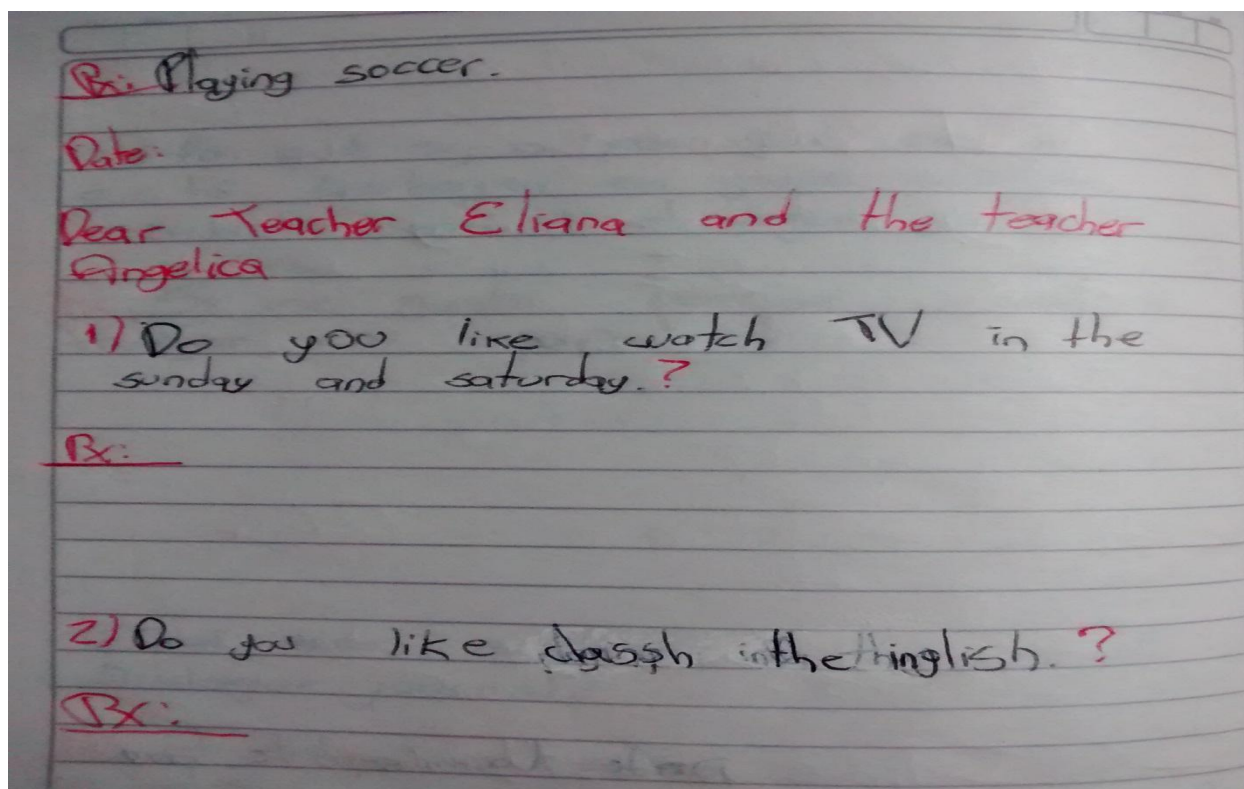 Rx: Playing soccer.
Date:
Dear Teacher Eliana and the teacher
Angelica
1) Do you like watch TV in the
sunday and saturday.?
Rx:
2) Do you like classh in the inglish.?
Rx: